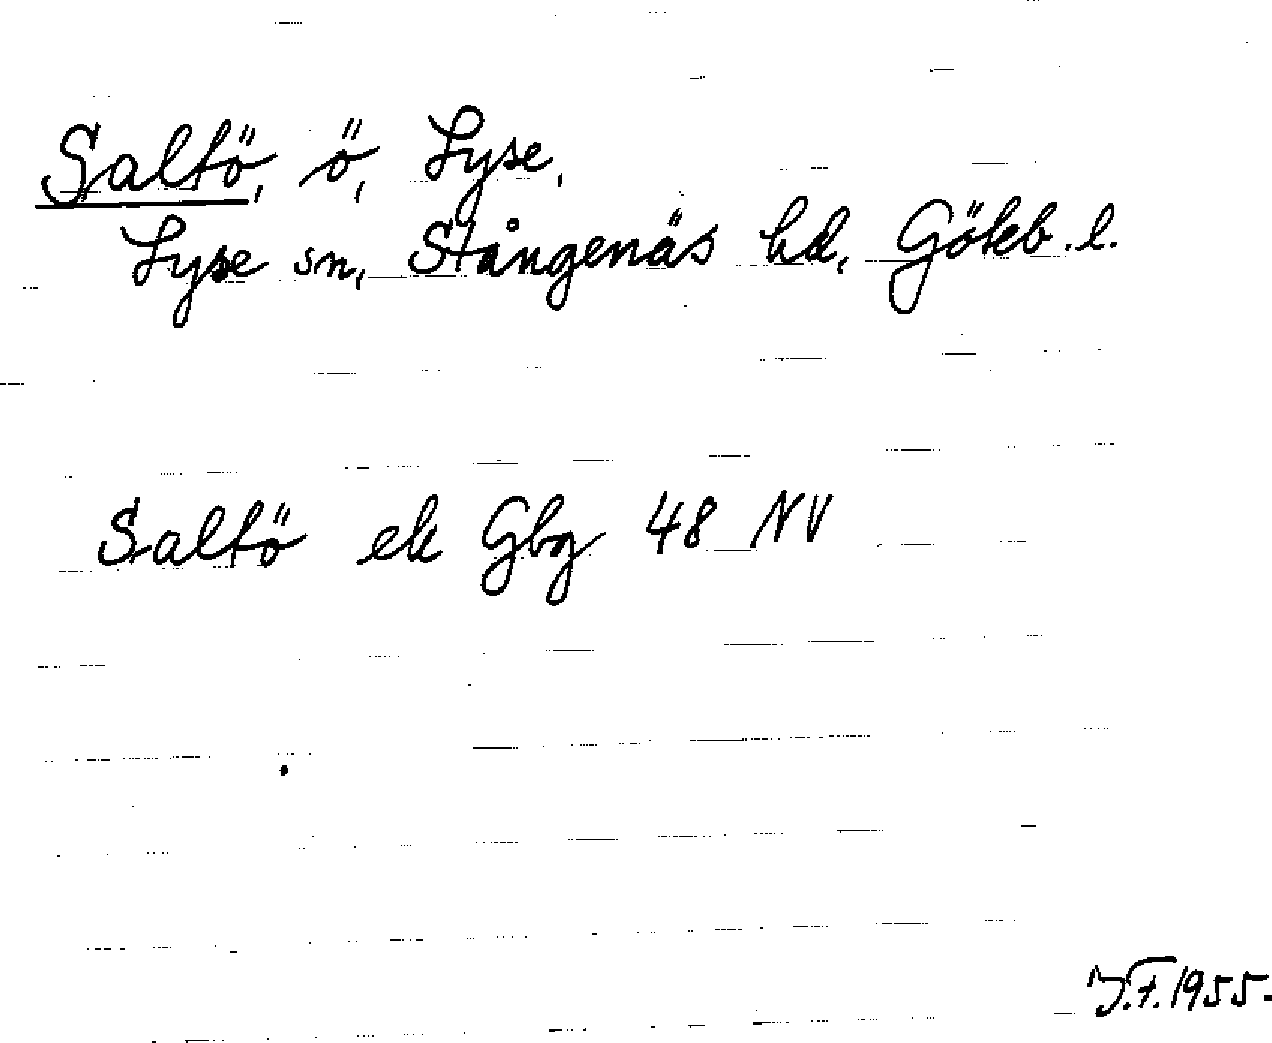 Saltö, ö, Lyse,
Lyse sn, Stångenäs hd, Göteb. l.
Saltö ek Gbg 48 NV
J.F. 1955.